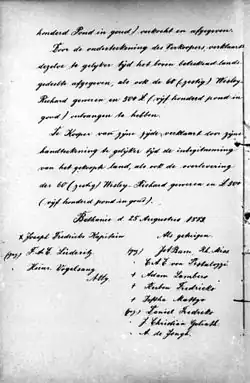 honderd Pond in goud) verkocht en afgegeven.
Door de onderteekening des Verkoopers, verklaart
dezelve te gelyker tijd het boven
gedeelte afgegeven, als ook de 60 (zestig) Wesley-
Richard geweren en 500 £ (vijf honderd pond in
goud) ontvangen te hebben.
De Kooper van zijne zijde, verklaart door zijne
handteekening te gelijker tijd de
van het gekogte land, als ook de overlevering
der 60 (zestig) Wesley-Richard geweren en £ 500
(vijf honderd pond in goud).
Bethanie d. 25 Augustus 1883
x Joseph Fredericks Kapitein
(gez) F. A. E. Lüderitz
" Heinr. Vogelsang
Als getuigen.
(gez) Joh Bam Rh. Miss
" C. A. E. von Pestalozzi
+ Adam Lambers
+ Ruben Fredricks
+ Jeftha
(gez) Daniel Fredricks
" J. Christian Goliath
" A. de Jongh.